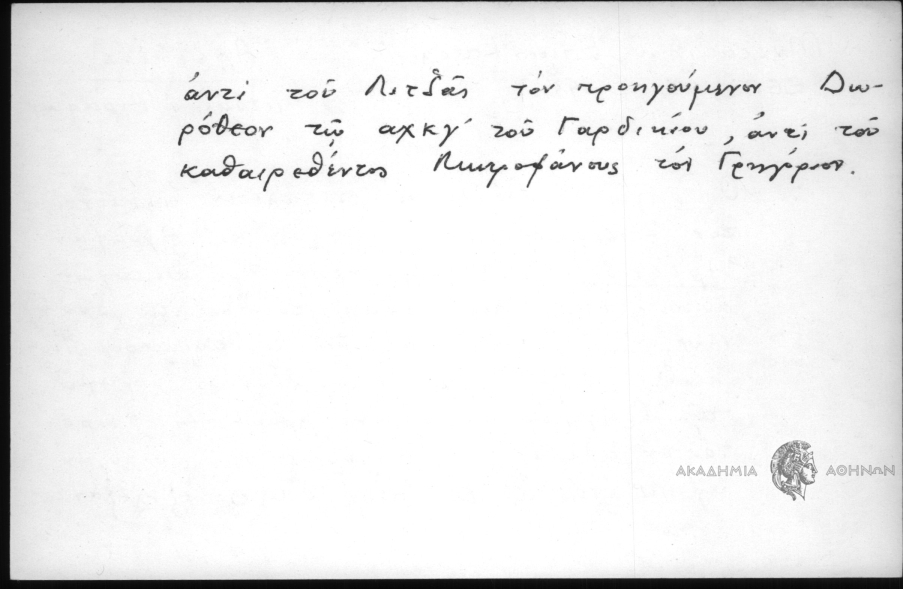 ἀντὶ τοῦ Λιτζᾶς τὸν προηγούμενον Δω-
ρόθεον τῷ αχκγʹ τοῦ Γαρδικίου, ἀντὶ τοῦ
καθαιρεθέντος Μητροφάνους τὸν Γρηγόριον.
ΑΚΑΔΗΜΙΑ ΑΘΗΝΩΝ